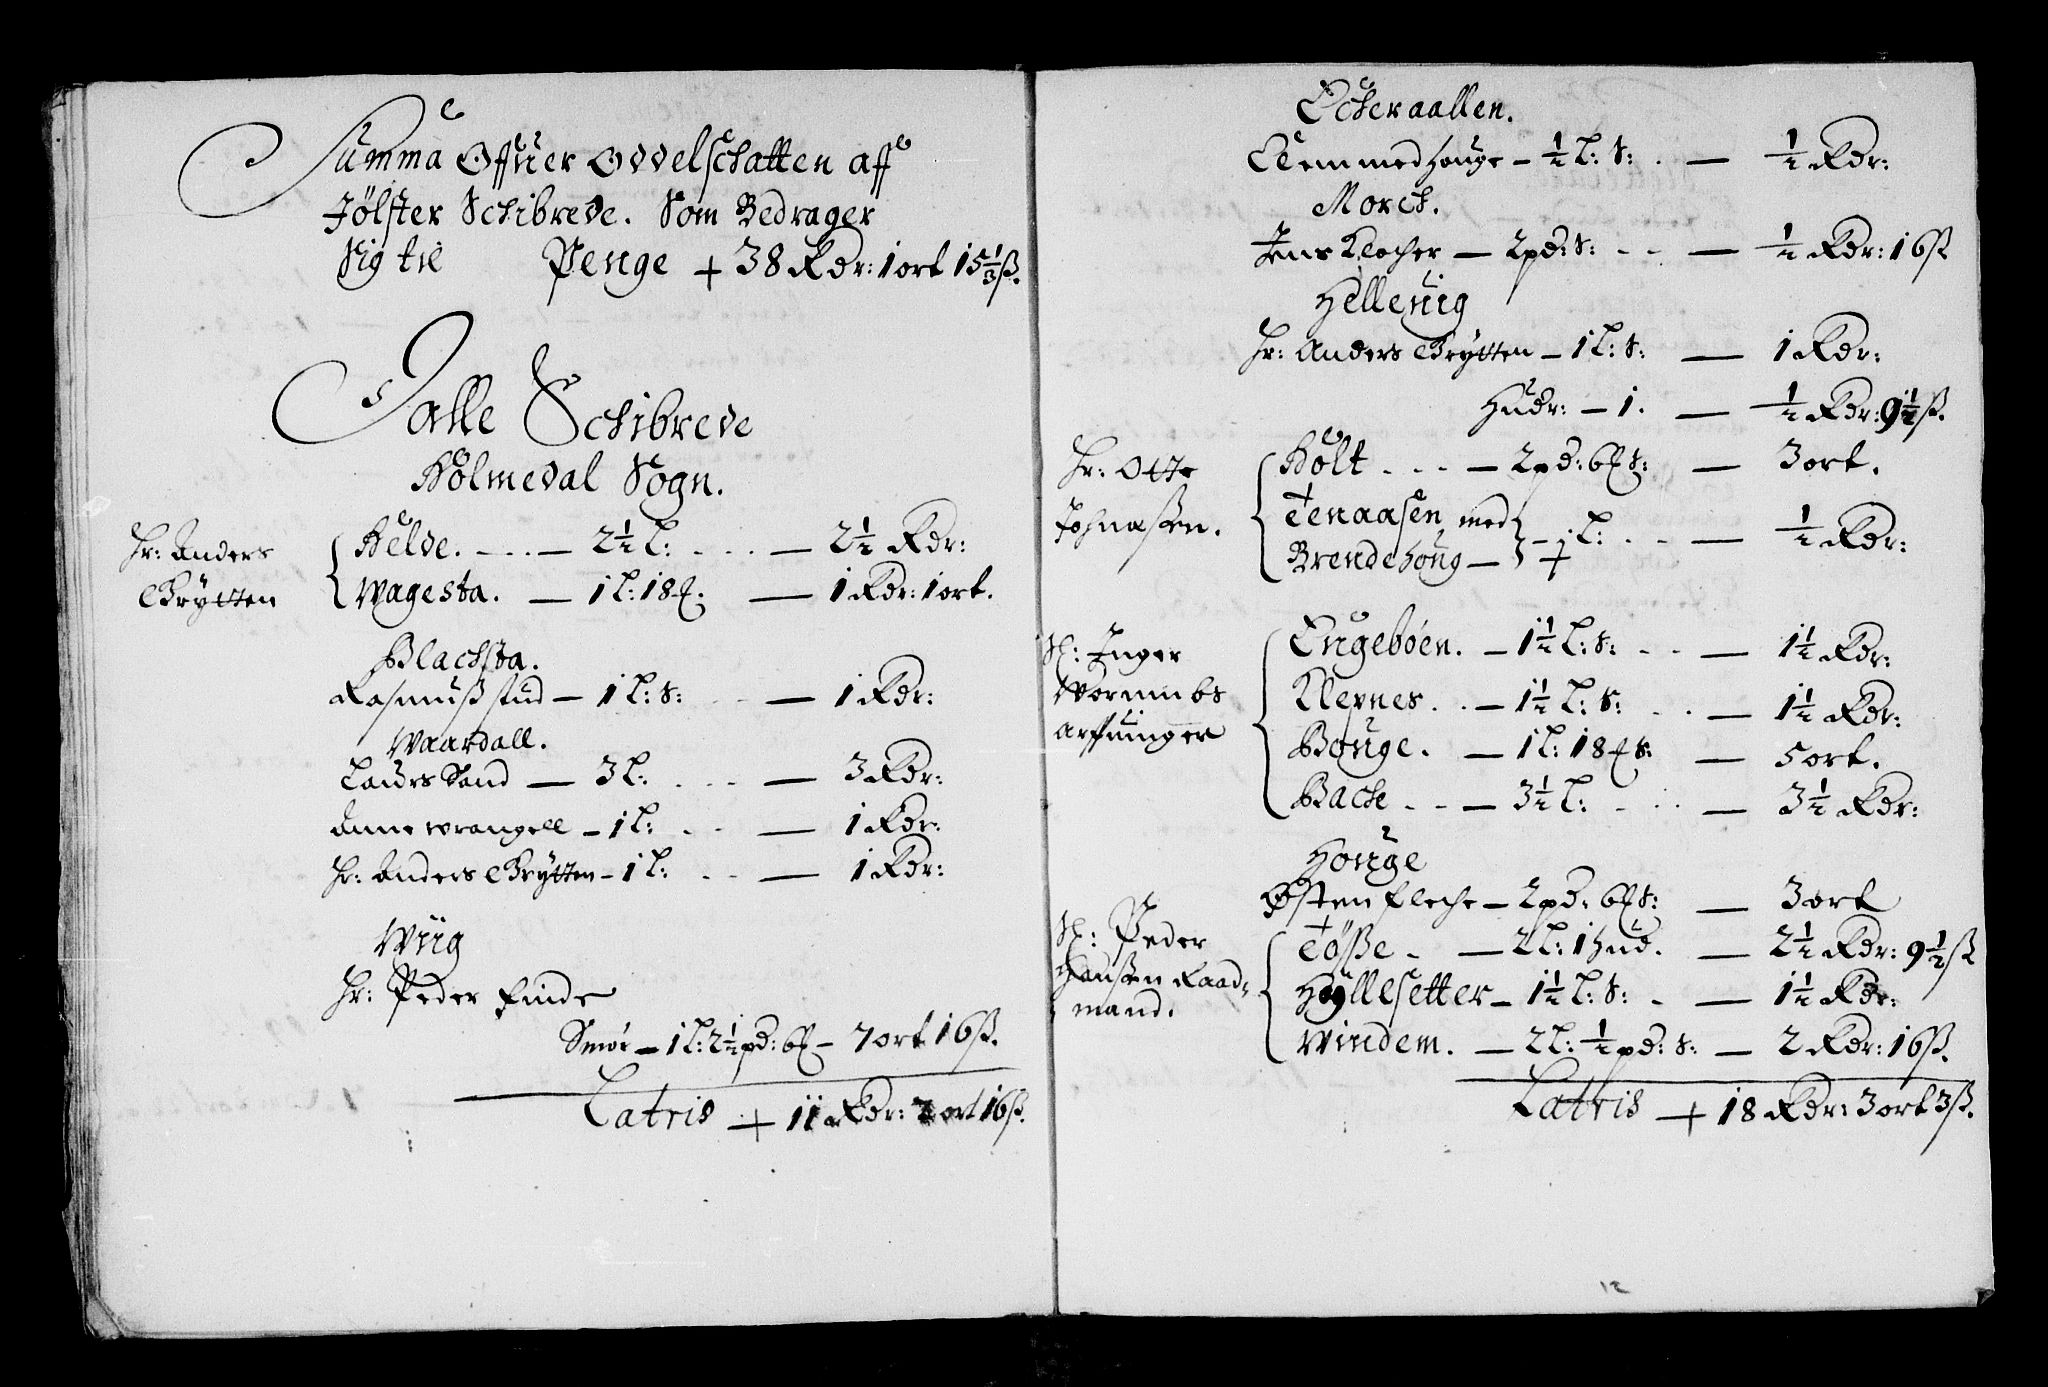 Summa Offuer Oddelschatten aff
Jölster Schibrede. Som Bedrager
Sig til Penge + 38 Rdr: 1 ort 15 1/3 ß.
Dalle Schibrede
Holmedal Sogn.
Hr: Anders
Brytten
Helde. — 2½ L: — 2½ Rdr:
Wagesta. — 1 L: 18 — 1 Rdr: 1 ort.
Blachsta.
Rasmuß stud — 1 L: S: — 1 Rdr:
Waardall.
Laurs Sand — 3 L: — 3 Rdr:
Anne Wrangell — 1 L: — 1 Rdr:
Hr: Anders Brytten — 1 L: — 1 Rdr:
Wiig
Hr: Peder Finde
Smör — 1 L: 2½ pd: 6 — 7 ort 16 ß.
Latris + 11 Rdr: 2 ort 16 ß.
Echeraallen.
Eem med houge — ½ L: S: — ½ Rdr:
Morch.
Jens Klocher — 2 pd: S: — ½ Rdr: 16 ß
Helleuig
Hr: Anders Brytten — 1 L: S: — 1 Rdr:
Hudr: — 1. — ½ Rdr: 9½ ß.
Hr: Otte
Johnaßen.
Holt — 2 pd: 6 S: — 3 ort.
Tenaasen med
Brendehoug — L: — ½ Rdr:
+
Sl: Inger
Wormmbs
arffuinger
Engeböen. — 1½ L: S: — 1½ Rdr:
Klepnes. — 1½ L: S: — 1½ Rdr:
Houge. — 1 L: 18 S: — 5 ort.
Bache — 3½ L: — 3½ Rdr:
Houge
Østen Fleche — 2 pd: 6 S: — 3 ort
Sl: Peder
Hanßen Raad-
mand.
Töße. — 2 L: 1 hud. — 2½ Rdr: 9½ ß
Hyllesetter — 1½ L: S: — 1½ Rdr:
Windem. — 2 L: ½ pd: S: — 2 Rdr: 16 ß.
Latris + 18 Rdr: 3 ort 3 ß.
12